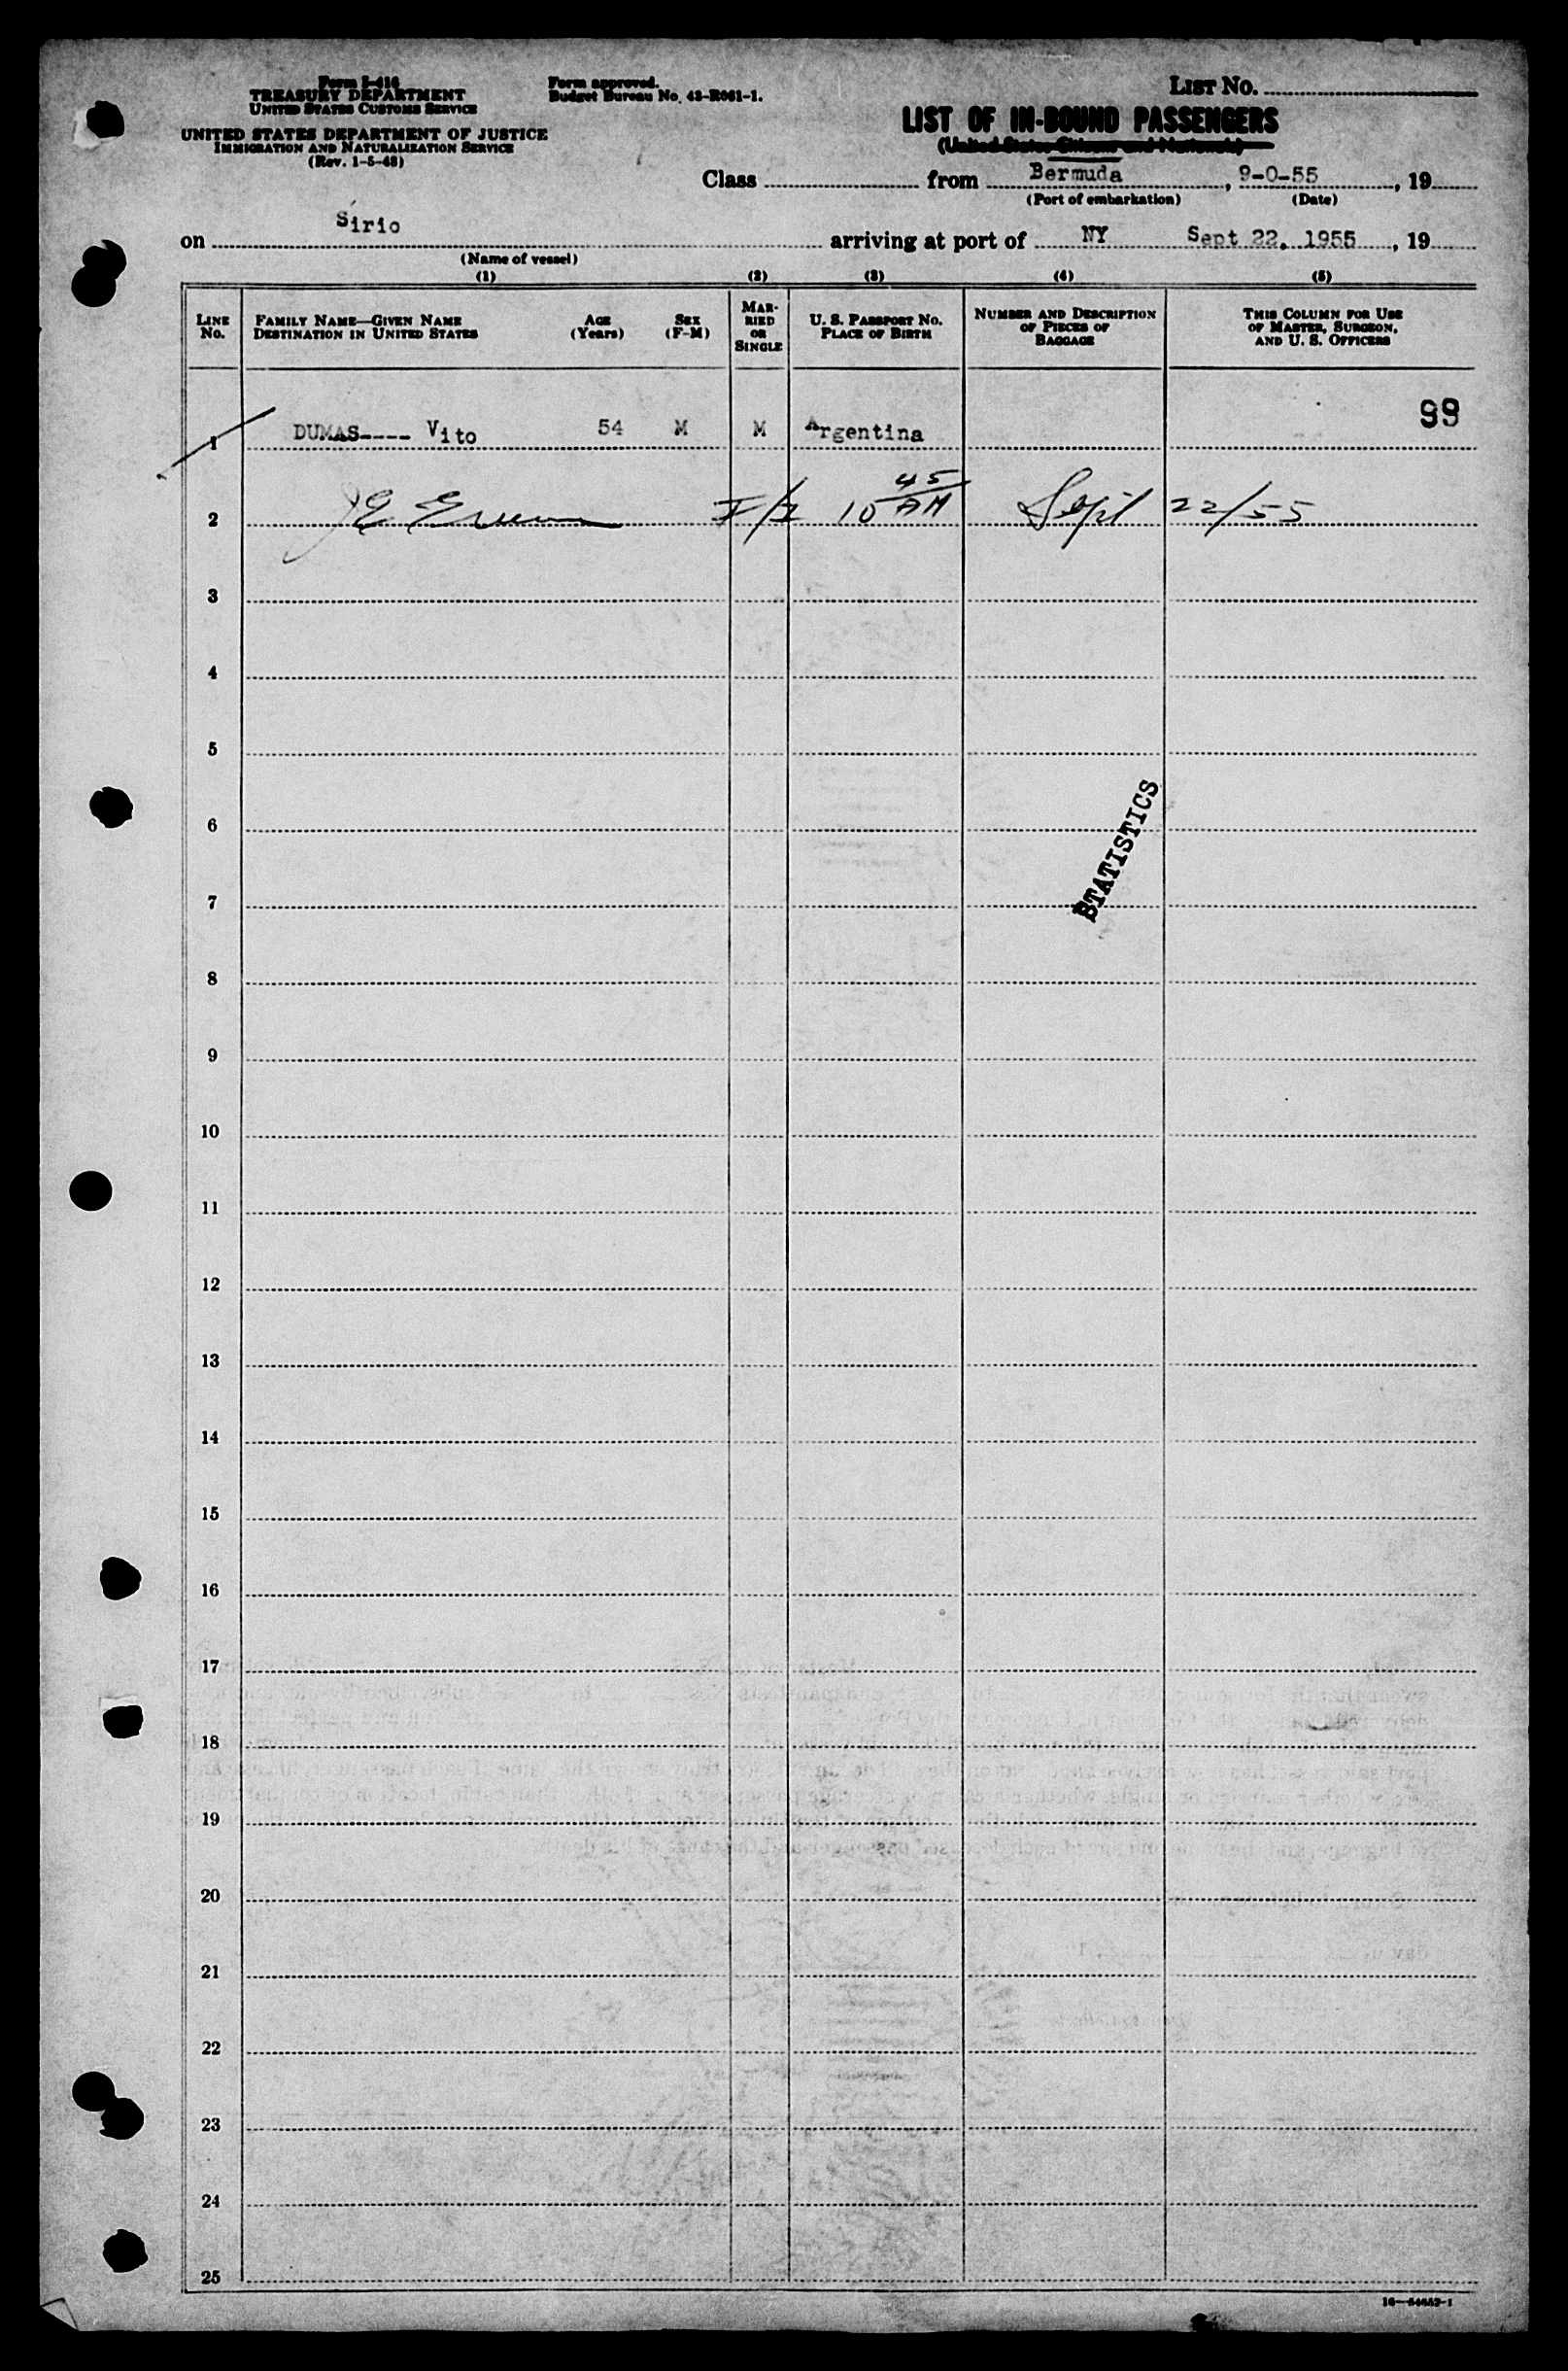 Form I-416
TREASURY DEPARTMENT
UNITED STATES CUSTOMS SERVICE
UNITED STATES DEPARTMENT OF JUSTICE
IMMIGRATION AND NATURALIZATION SERVICE
(Rev. 1-5-48)
Form approved.
Budget Bureau No. 43-R061-1.
LIST NO.
LIST OF IN-BOUND PASSENGERS
(United States Citizens and Nationals)
Class from Bermuda, 9-0-55, 19
(Port of embarkation) (Date)
on Sirio arriving at port of NY Sept 22, 1955, 19
(Name of vessel)
(1) (2) (3) (4) (5)
LINE NO.
FAMILY NAME—GIVEN NAME
DESTINATION IN UNITED STATES
AGE (Years)
SEX (F-M)
MARRIED OR SINGLE
U. S. PASSPORT NO.
PLACE OF BIRTH
NUMBER AND DESCRIPTION OF PIECES OF BAGGAGE
THIS COLUMN FOR USE OF MASTER, SURGEON, AND U. S. OFFICERS
99
1 DUMAS---- Vito 54 M M Argentina
2 I/I 10 45 AM Sept 22/55
3
4
5
6
STATISTICS
7
8
9
10
11
12
13
14
15
16
17
18
19
20
21
22
23
24
25